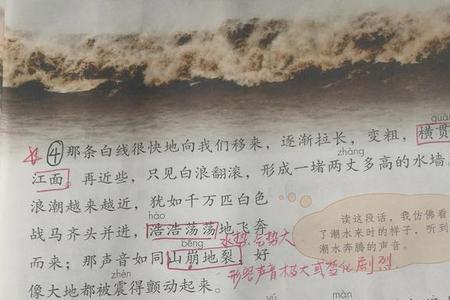 guàn
④那条白线很快地向我们移来，逐渐拉长，变粗，横贯
zhàng
江面。再近些，只见白浪翻滚，形成一堵两丈多高的水墙。
浪潮越来越近，犹如千万匹白色
hào
战马齐头并进，浩浩荡荡地飞奔
水势、气势大
bēng
而来；那声音如同山崩地裂，好
形容声音极大或变化剧烈
zhèn
像大地都被震得颤动起来。
读这段话，我仿佛看
了潮水来时的样子，听到
潮水奔腾的声音。
yú
màn